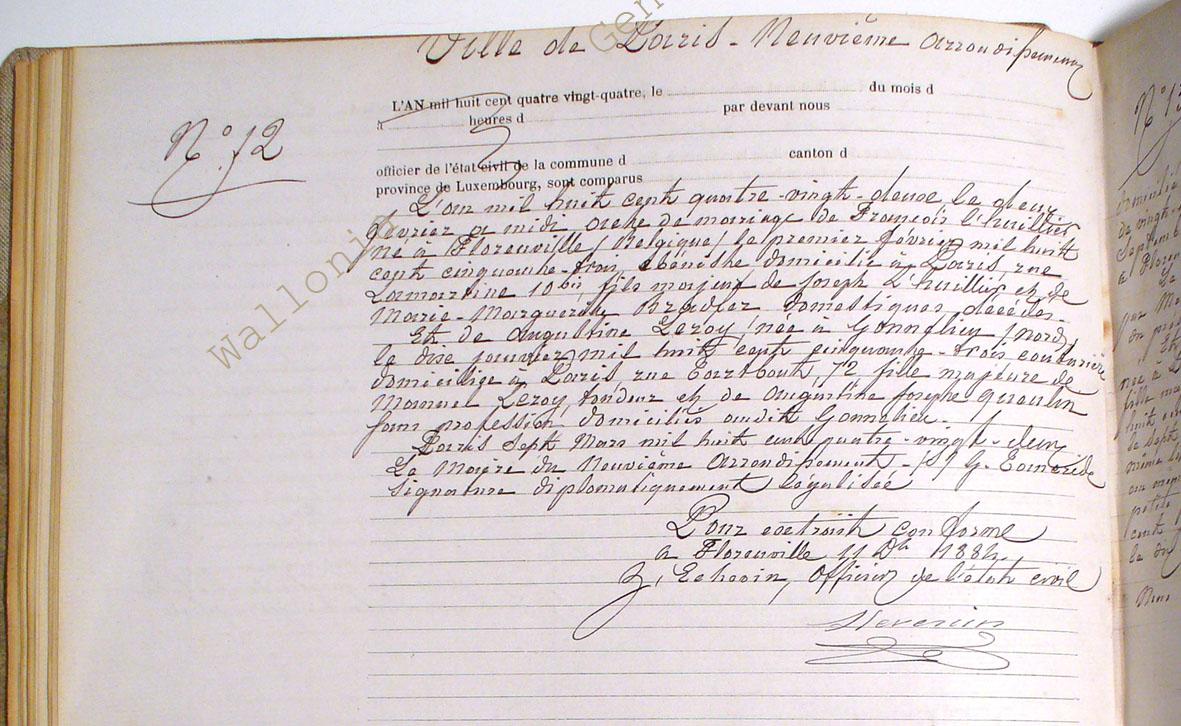 Ville de Paris - Neuvième arrondissement
N° 12
L'AN mil huit cent quatre vingt-quatre, le du mois d
à heures d par devant nous
officier de l'état civil de la commune d canton d
province de Luxembourg, sont comparus
L'an mil huit cent quatre-vingt-deux, le deux
février a midi acte de mariage de François L'huillier
né à Florenville (Belgique) le premier février mil huit
cent cinquante-trois, ébéniste domicilié à Paris, rue
Lamartine 10 bis, fils majeur de Joseph L'huillier et de
Marie-Marguerite domestiques, décédés.
Et de Augustine Leroy, née à Gonnelieu (nord)
le dix janvier mil huit cent cinquante-trois couturière
domiciliée à Paris, rue Taitbout, 72 fille majeure de
Leroy, et de Augustine Josephe
sans profession domiciliés audit Gonnelieu.
Paris Sept Mars mil huit cent quatre-vingt-deux
Le Maire du Neuvième Arrondissement - (S) G.
Signature diplomatiquement légalisée
Pour extrait conforme
a Florenville 11 Dbre 1884.
L'Echevin, Officier de l'état civil
Wallonie
Gen